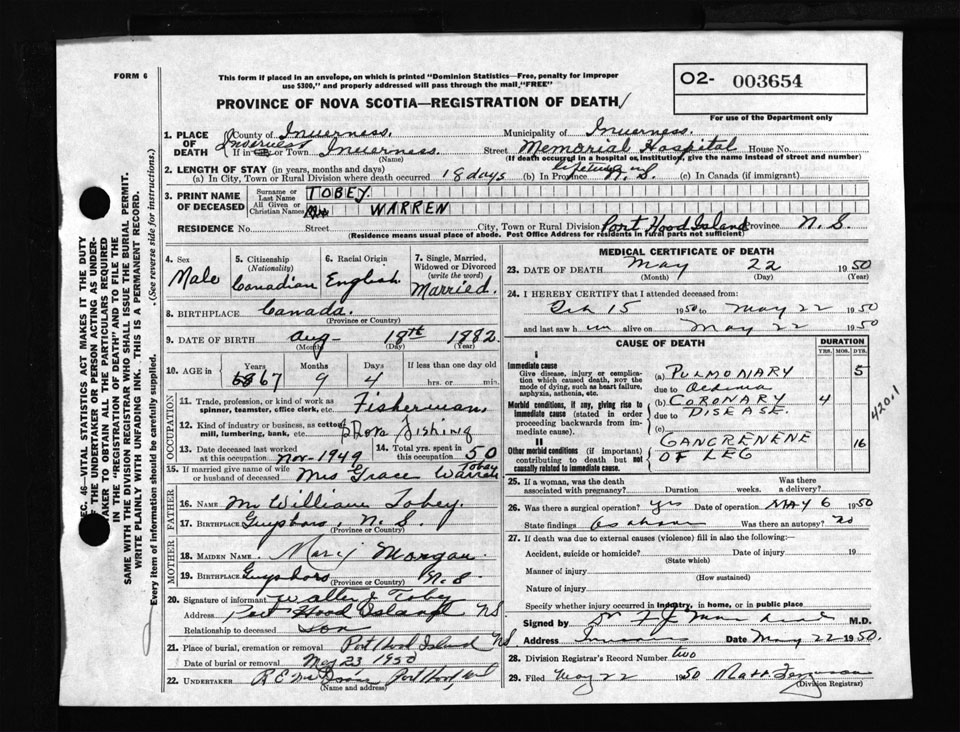 FORM 6
This form if placed in an envelope, on which is printed "Dominion Statistics—Free, penalty for improper
use $300," and properly addressed will pass through the mail "FREE"
O2- 003654
PROVINCE OF NOVA SCOTIA—REGISTRATION OF DEATH
For use of the Department only
1. PLACE OF DEATH County of Inverness. Municipality of Inverness.
If in City or Town Inverness. (Name) Street Memorial Hospital House No.
(If death occurred in a hospital or institution, give the name instead of street and number)
2. LENGTH OF STAY (in years, months and days)
(a) In City, Town or Rural Division where death occurred 18 days (b) In Province lifetime N.S. (c) In Canada (if immigrant)
3. PRINT NAME OF DECEASED Surname or Last Name TOBEY.
All Given or Christian Names WARREN
RESIDENCE No. Street City, Town or Rural Division Port Hood Island Province N.S.
(Residence means usual place of abode. Post Office Address for residents in rural parts not sufficient)
4. Sex Male
5. Citizenship (Nationality) Canadian
6. Racial Origin English
7. Single, Married, Widowed or Divorced (write the word) Married.
8. BIRTHPLACE Canada. (Province or Country)
9. DATE OF BIRTH Aug- (Month) 18th (Day) 1882 (Year)
10. AGE in Years 67 Months 9 Days 4 If less than one day old hrs. or min.
OCCUPATION
11. Trade, profession or kind of work as spinner, teamster, office clerk, etc. Fisherman
12. Kind of industry or business, as cotton mill, lumbering, bank, etc. Shore fishing
13. Date deceased last worked at this occupation Nov-1949
14. Total yrs. spent in this occupation 50
15. If married give name of wife or husband of deceased Mrs Grace Warren Tobey
FATHER
16. NAME Mr William Tobey.
17. BIRTHPLACE Guysboro, N.S. (Province or Country)
MOTHER
18. MAIDEN NAME Mary Morgan.
19. BIRTHPLACE Guysboro (Province or Country) N.S.
20. Signature of informant Walter J Tobey
Address Port Hood Island NS
Relationship to deceased Son
21. Place of burial, cremation or removal Port Hood Island NS
Date of burial or removal May 23 1950
22. UNDERTAKER Port Hood, (Name and address)
MEDICAL CERTIFICATE OF DEATH
23. DATE OF DEATH May (Month) 22 (Day) 1950 (Year)
24. I HEREBY CERTIFY that I attended deceased from:
Feb 15 1950 to May 22 1950
and last saw him alive on May 22 1950
CAUSE OF DEATH DURATION
YRS. MOS. DYS.
I
Immediate cause
Give disease, injury or complication which caused death, NOT the mode of dying, such as heart failure, asphyxia, asthenia, etc.
(a) PULMONARY 5
due to Oedema
Morbid conditions, if any, giving rise to immediate cause (stated in order proceeding backwards from immediate cause).
(b) CORONARY 4
due to DISEASE.
(c)
420.1
II
Other morbid conditions (if important) contributing to death but not causally related to immediate cause.
GANGRENENE 16
OF LEG
25. If a woman, was the death associated with pregnancy? Duration weeks. Was there a delivery?
26. Was there a surgical operation? Yes Date of operation MAY 6 1950
State findings as above Was there an autopsy? no
27. If death was due to external causes (violence) fill in also the following:
Accident, suicide or homicide? (State which) Date of injury 19
Manner of injury (How sustained)
Nature of injury
Specify whether injury occurred in industry, in home, or in public place
Signed by M.D.
Address Date May 22 1950.
28. Division Registrar's Record Number two
29. Filed May 22 1950 (Division Registrar)
SEC. 46—VITAL STATISTICS ACT MAKES IT THE DUTY
OF THE UNDERTAKER OR PERSON ACTING AS UNDER-
TAKER TO OBTAIN ALL THE PARTICULARS REQUIRED
IN THE "REGISTRATION OF DEATH" AND TO FILE THE
SAME WITH THE DIVISION REGISTRAR WHO SHALL ISSUE THE BURIAL PERMIT.
WRITE PLAINLY WITH UNFADING INK. THIS IS A PERMANENT RECORD.
Every item of information should be carefully supplied. (See reverse side for instructions.)